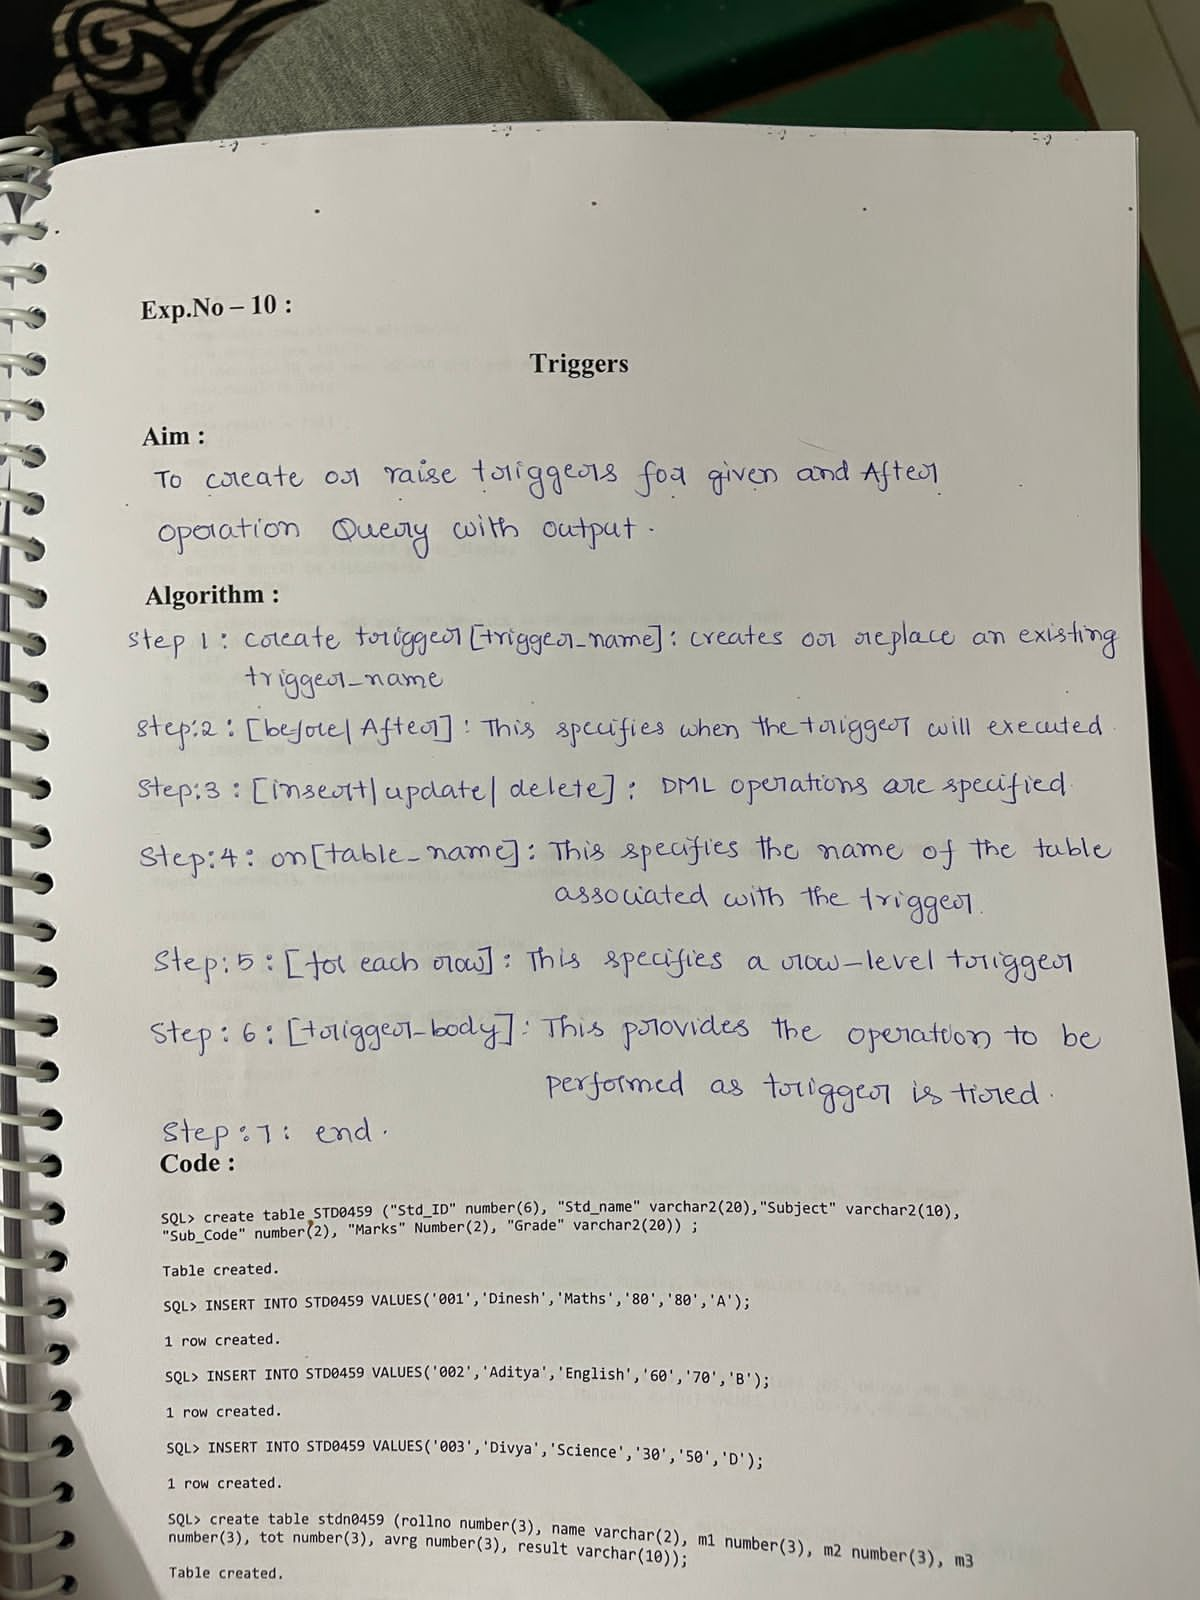 Exp.No – 10 :
Triggers
Aim :
To create or raise triggers for given and After
operation Query with output.
Algorithm :
Step 1 : create trigger [trigger_name] : creates or replace an existing
trigger_name
Step:2 : [before| After] : This specifies when the trigger will executed
Step:3 : [insert| update| delete] : DML operations are specified.
Step:4 : on[table_name] : This specifies the name of the table
associated with the trigger.
Step:5 : [for each row] : This specifies a row-level trigger
Step:6 : [trigger_body] : This provides the operation to be
performed as trigger is fired.
Step:7 : end.
Code :
SQL> create table STD0459 ("Std_ID" number(6), "Std_name" varchar2(20),"Subject" varchar2(10),
"Sub_Code" number(2), "Marks" Number(2), "Grade" varchar2(20)) ;
Table created.
SQL> INSERT INTO STD0459 VALUES('001','Dinesh','Maths','80','80','A');
1 row created.
SQL> INSERT INTO STD0459 VALUES('002','Aditya','English','60','70','B');
1 row created.
SQL> INSERT INTO STD0459 VALUES('003','Divya','Science','30','50','D');
1 row created.
SQL> create table stdn0459 (rollno number(3), name varchar(2), m1 number(3), m2 number(3), m3
number(3), tot number(3), avrg number(3), result varchar(10));
Table created.